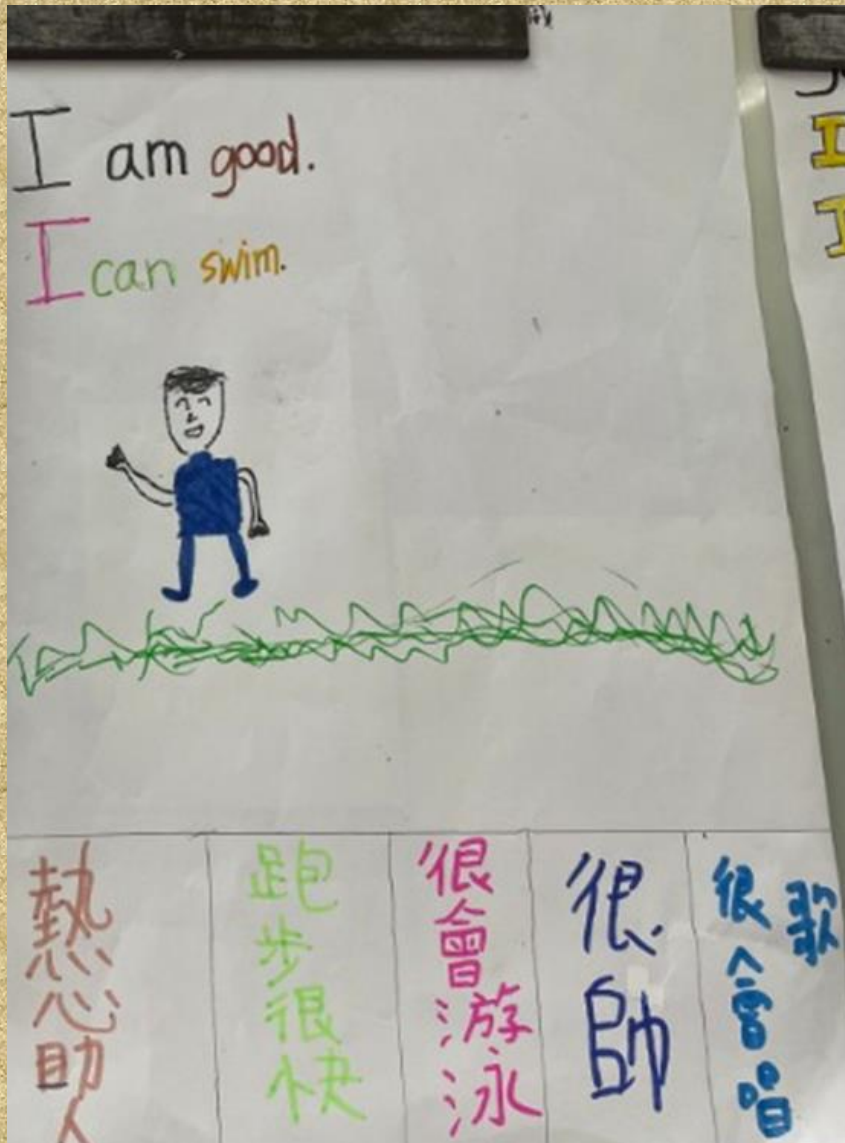 I am good.
I can swim.
熱心助人
跑步很快
很會游泳
很帥
很會唱歌